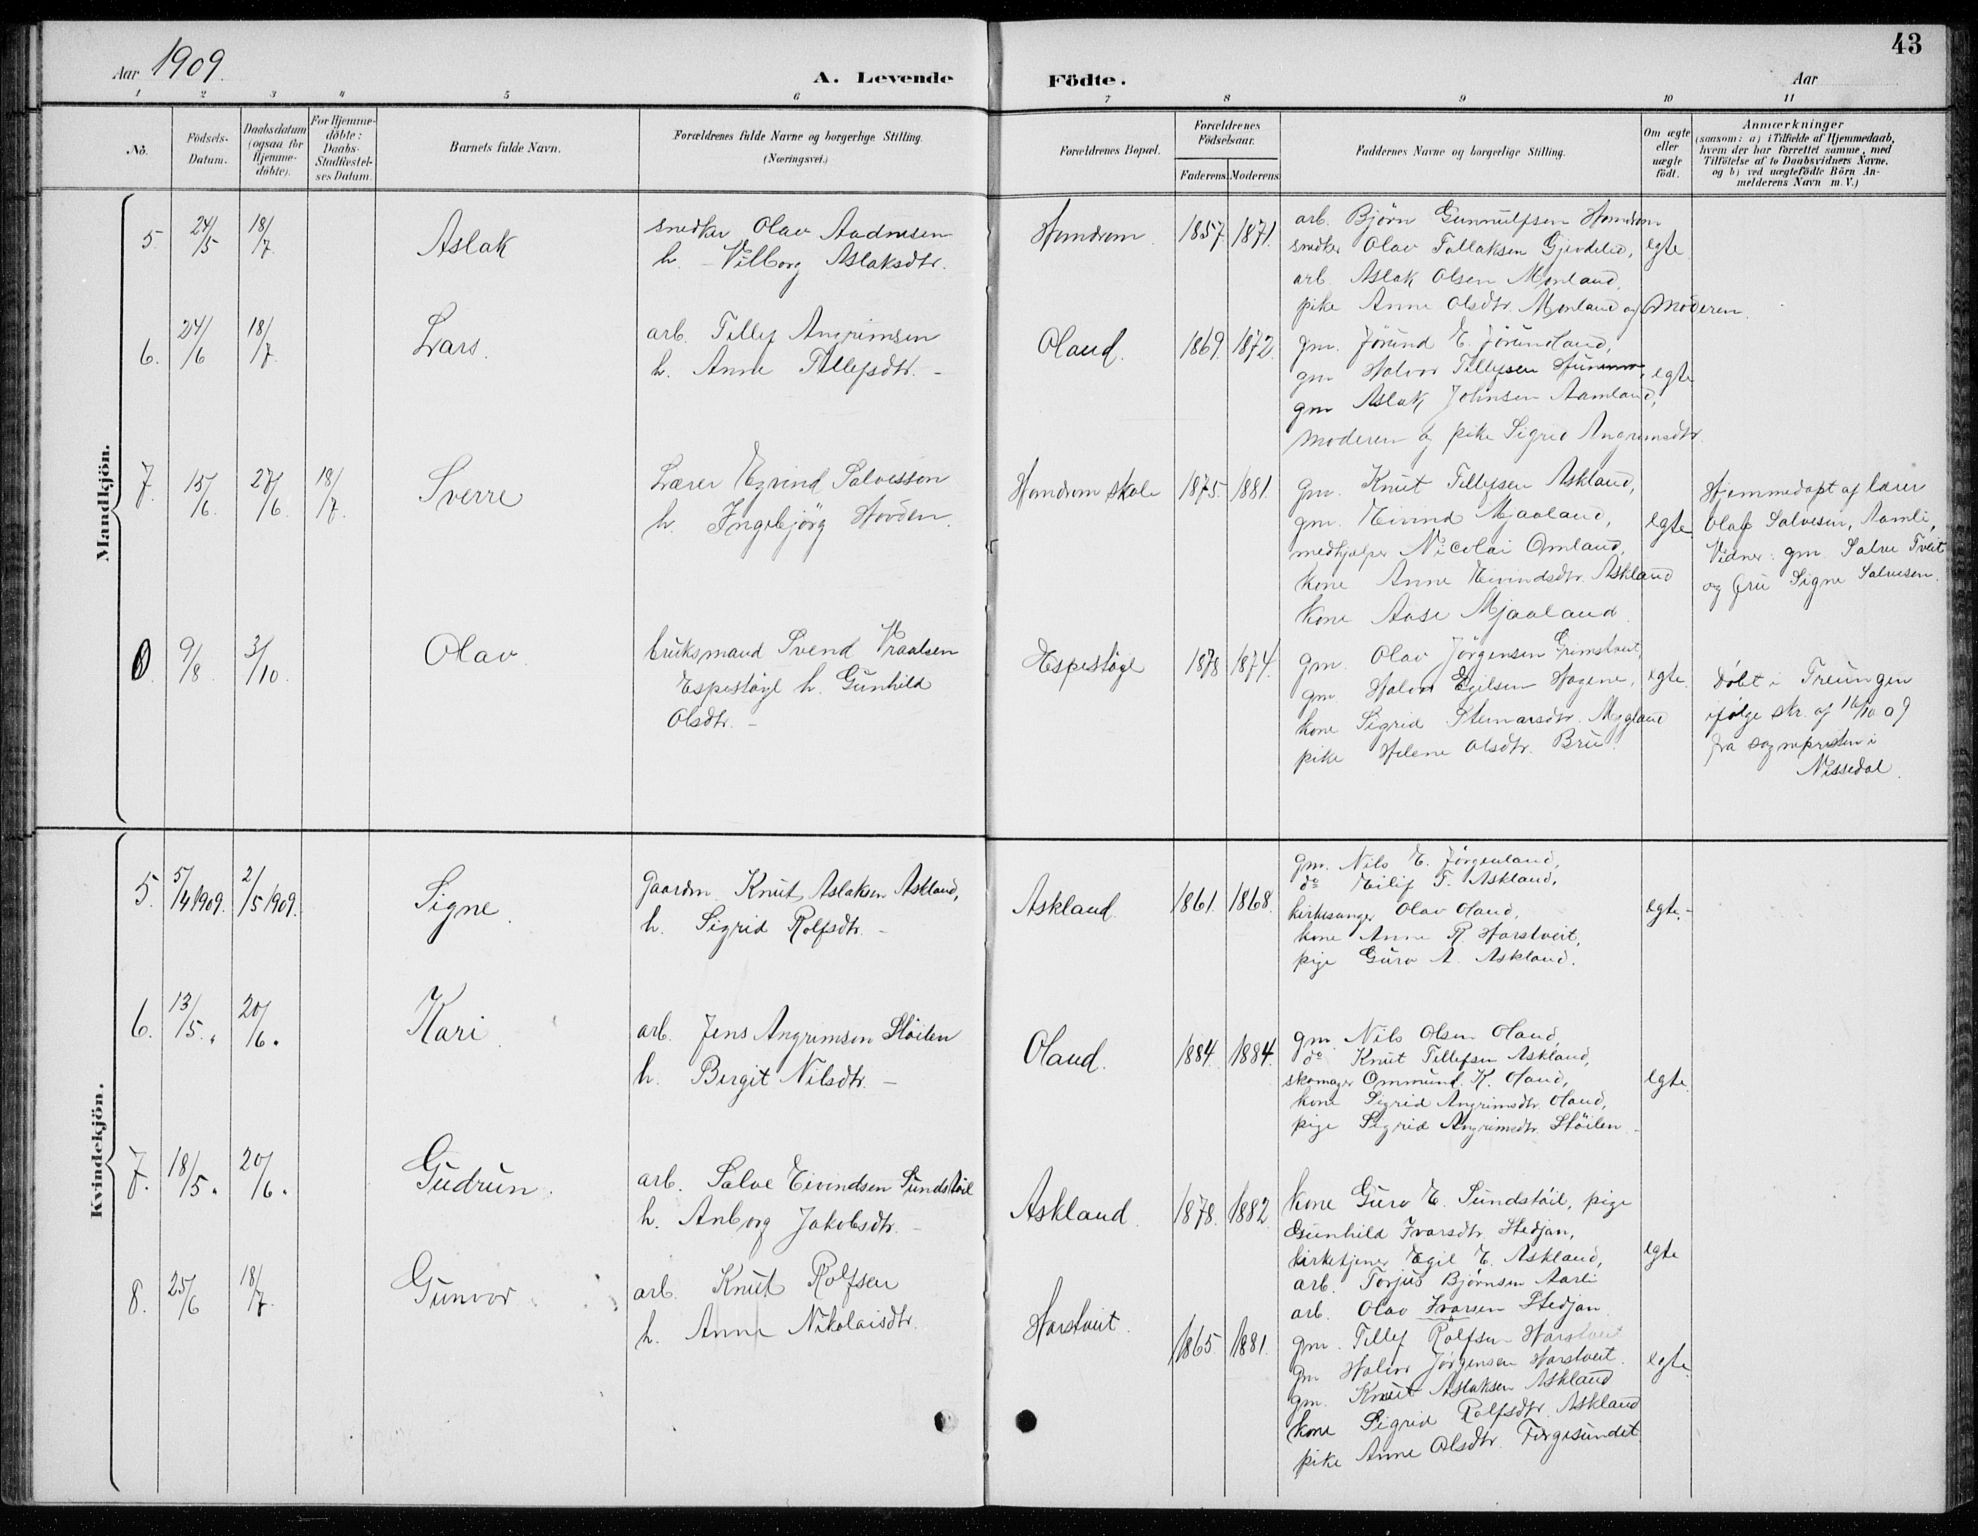 43
Aar 1909.
A. Levende Födte.
Aar
1 2 3 4 5 6 7 8 9 10 11
No.
Födsels-
Datum.
Daabsdatum
(ogsaa for
Hjemme-
döbte).
For Hjemme-
döbte:
Daabs-
Stadfæstel-
ses Datum.
Barnets fulde Navn.
Forældrenes fulde Navne og borgerlige Stilling.
(Næringsvei.)
Forældrenes Bopæl.
Forældrenes
Födselsaar.
Faderens. Moderens.
Faddernes Navne og borgerlige Stilling.
Om ægte
eller
uægte
födt.
Anmærkninger
(saasom: a) i Tilfælde af Hjemmedaab,
hvem der har forrettet samme, med
Tilföielse af to Daabsvidners Navne,
og b) ved uægtefödte Börn An-
melderens Navn m. V.)
Mandkjön.
5. 24/5 18/7.
Aslak
snedker Olav Aadnesen
h. - Vilborg Aslaksdtr.
Homdrom
1857 1871.
arb. Bjørn Gunnulfsen Homdrom
snedker Olav Tallaksen Gjevdelid,
arb. Aslak Olsen Monland,
pike Anne Olsdtr. Monland og Moderen.
egte
6. 24/6 18/7.
Lars.
arb. Tellef Angrimsen
h. Anne Tellefsdtr. -
Oland.
1869. 1872.
gm. Jørund E. Jørundland,
gm Halvor Tellefsen
gm Aslak Johnsen Aamland,
Moderen og pike Sigrid Angrimsdtr.
egte
7. 15/6. 27/6 18/7.
Sverre
Lærer Eyvind Salvesson
h. Ingebjörg Hovden.
Homdrom skole
1875. 1881.
gm. Knut Tellefsen Askland,
gm. Eivind Mjaaland,
medhjælper Nicolai Omland,
kone Anne Eivindsdtr. Askland
kone Aase Mjaaland.
egte
Hjemmedøpt af lærer
Olaf Salvesen, Aamli,
Vidner: gm. Salve Tveit
og fru Signe Salvesen.
8. 9/8. 3/10.
Olav
bruksmand Svend Vraalsen
Espestøyl h. Gunhild
Olsdtr. -
Espestøyl
1878 1874.
gm. Olav Jørgensen Grimstveit,
gm. Halvor Egilsen Hagene,
kone Sigrid Steinarsdtr. Mygland
pike Helene Olsdtr. Bru.
egte.
Døbt i Treungen
ifølge skr. af 16/10 09
fra sognepresten i
Nissedal.
Kvindekjön.
5. 5/4 1909. 2/5 1909.
Signe.
Gaardm. Knut Aslaksen Askland,
h. Sigrid Rolfsdtr. -
Askland.
1861. 1868.
gm. Nils E. Jørgenland,
do Eilif T. Askland,
kirkesanger Olav Oland,
kone Anne R. Harstveit,
pige Guro A. Askland.
egte.-
6. 13/5. 20/6.
Kari.
arb. Jens Angrimsen Støilen
h. Bergit Nilsdtr. -
Oland.
1884. 1884.
gm. Nils Olsen Oland,
do Knut Tellefsen Askland,
skomager Ommund K. Oland,
kone Sigrid Angrimsdtr. Oland,
pige Sigrid Angrimsdtr. Støilen -
egte.
7. 18/5. 20/6.
Gudrun.
arb. Salve Eivindsen Sundstøil
h. Anborg Jakobsdtr. -
Askland.
1878. 1882.
kone Guro E. Sundstøil, pige
Gunhild Ivarsdtr. Stedjan,
kirketjener Egil E. Askland,
arb. Torjus Bjørnsen Aarli
arb. Olav Ivarsen Stedjan.
egte
8. 25/6 18/7.
Gunvor
arb. Knut Rolfsen
h. Anne Nikolaisdtr.
Harstveit.
1865. 1881.
gm. Tellef Rolfsen Harstveit
gm Halvor Jørgensen Harstveit.
gm. Knut Aslaksen Askland
kone Sigrid Rolfsdtr. Askland
pike Anne Olsdtr. Færgesundet
egte.